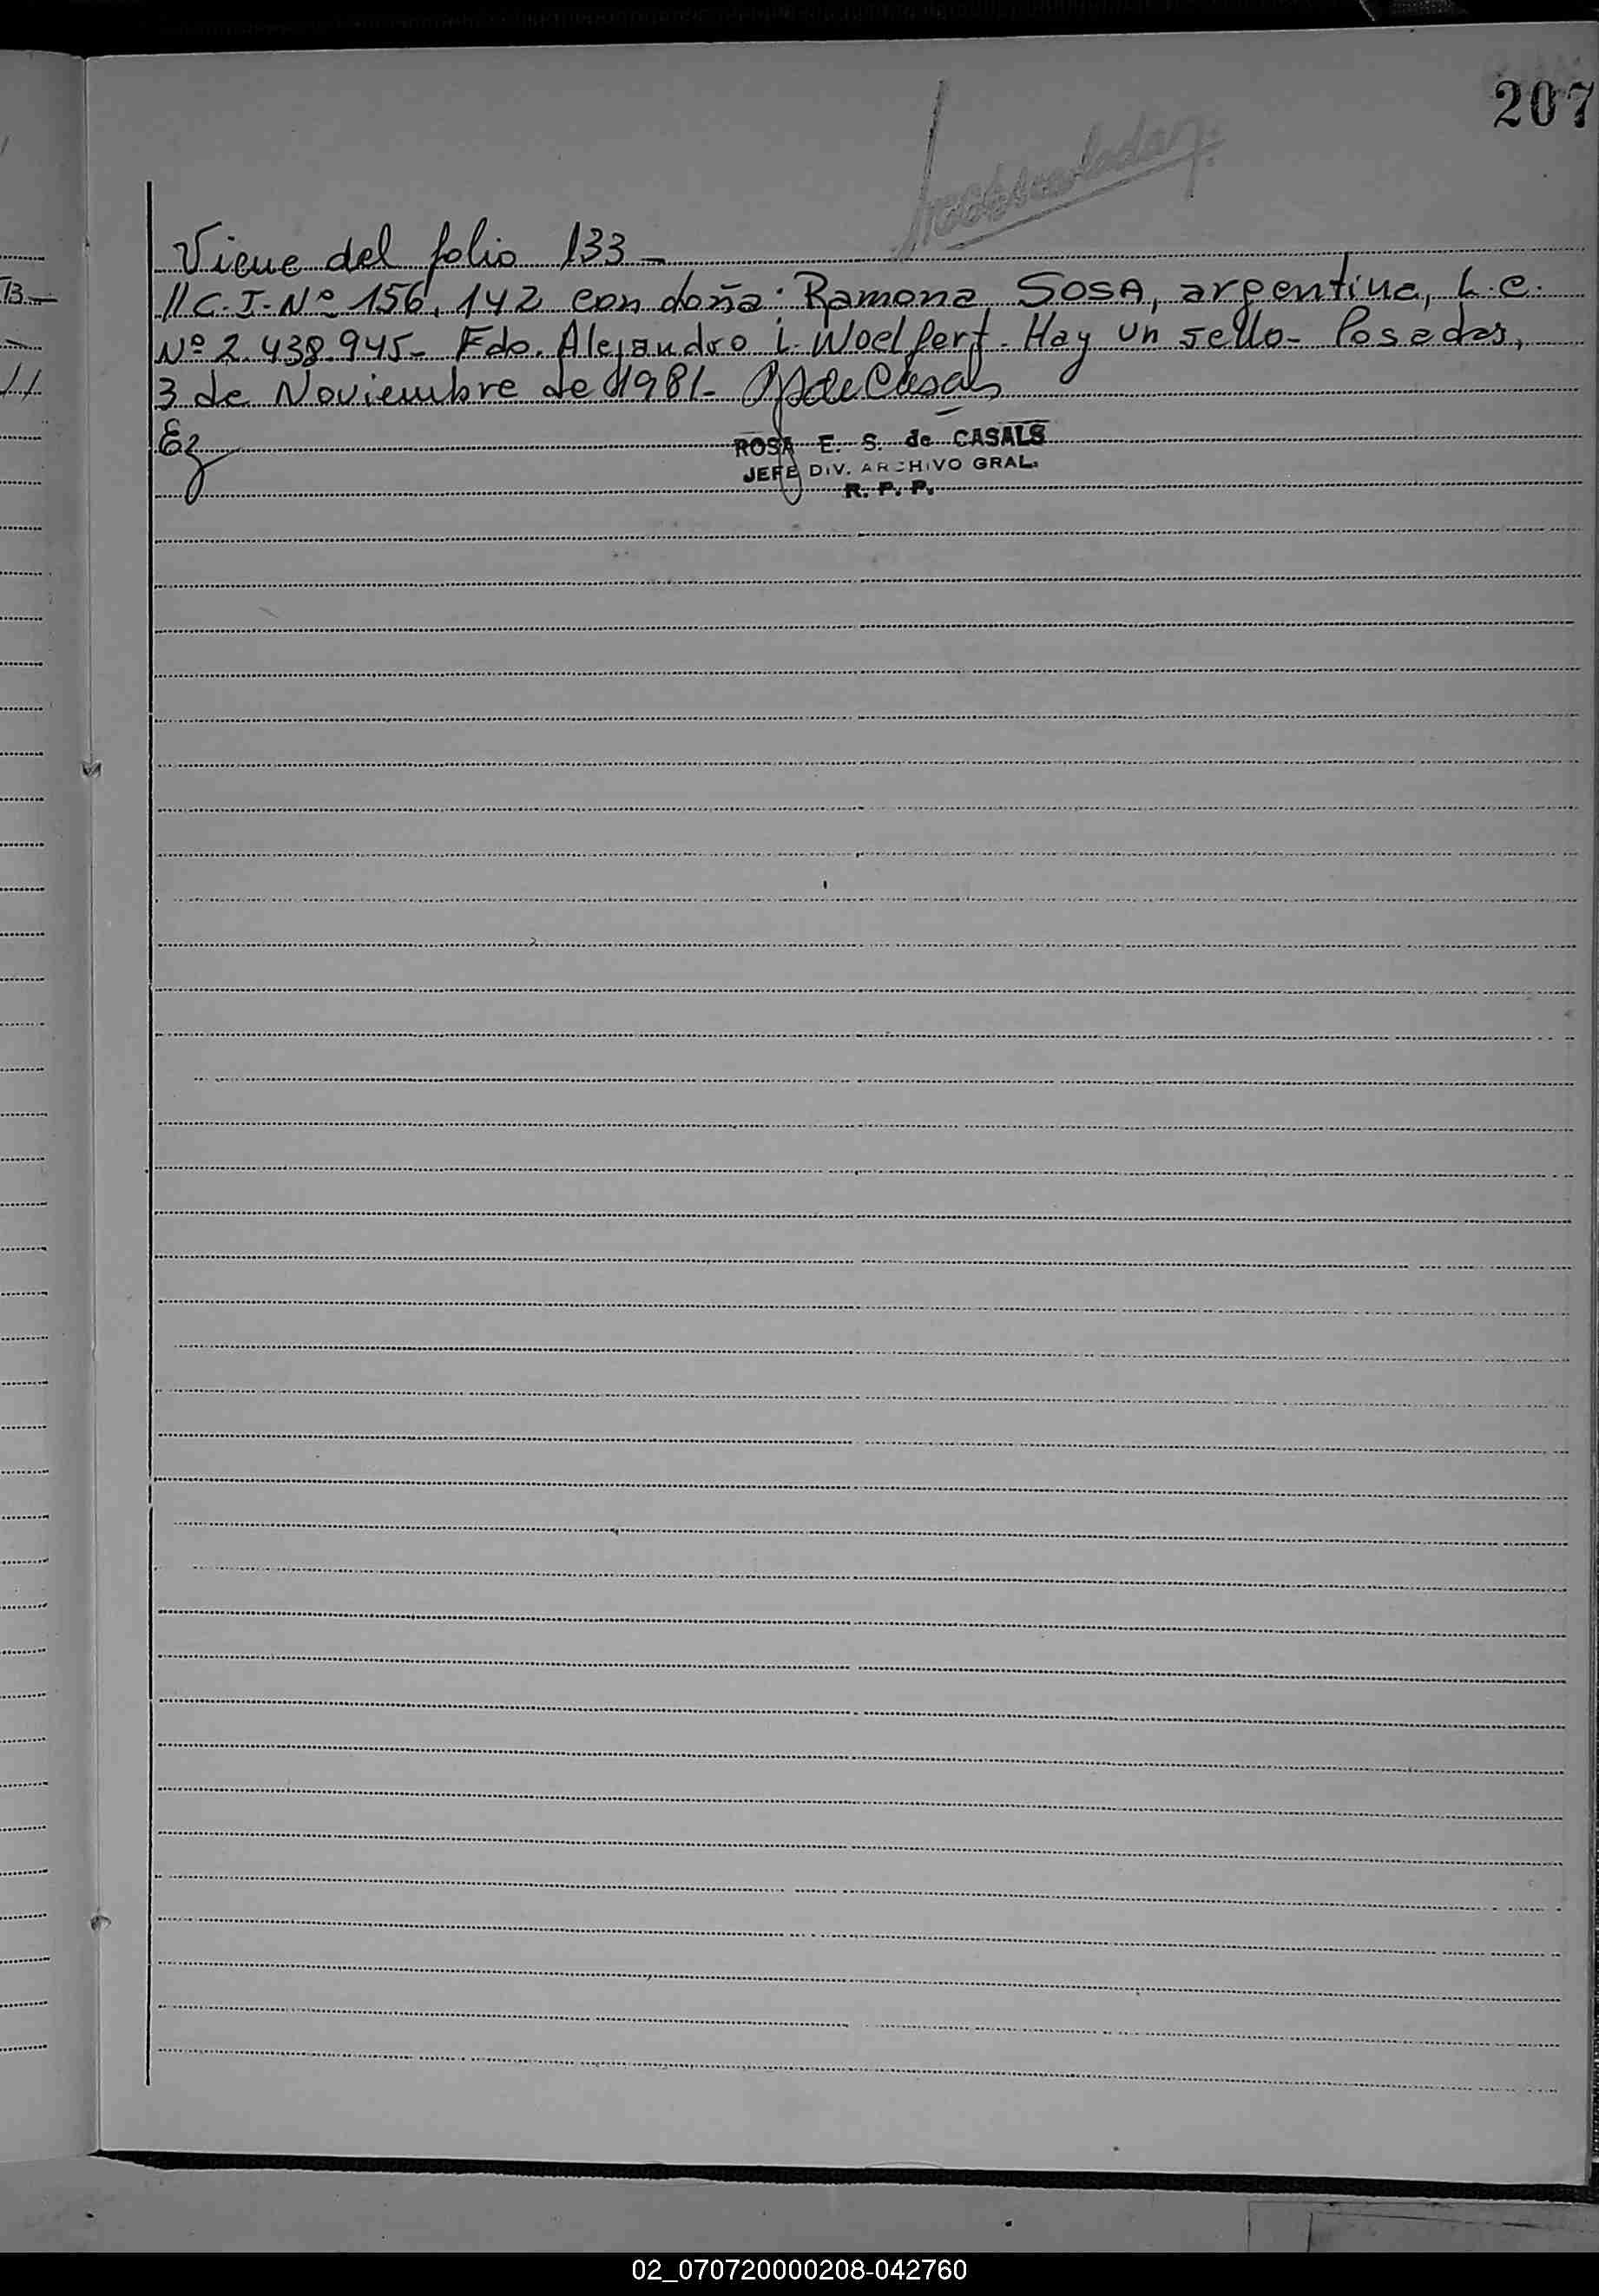 207
Viene del folio 133 -
//C.I. Nº 156.142 con doña: Ramona SOSA, argentina, L.C.
Nº 2.438.945- Fdo. Alejandro L. Woelfert. Hay un sello- Posadas,
3 de Noviembre de 1981- de Casals
Ez
ROSA E. S. de CASALS
JEFE DIV. ARCHIVO GRAL.
R. P. P.
B.-
//
02_070720000208-042760